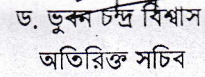 ড. ভুবন চন্দ্র বিশ্বাস
অতিরিক্ত সচিব